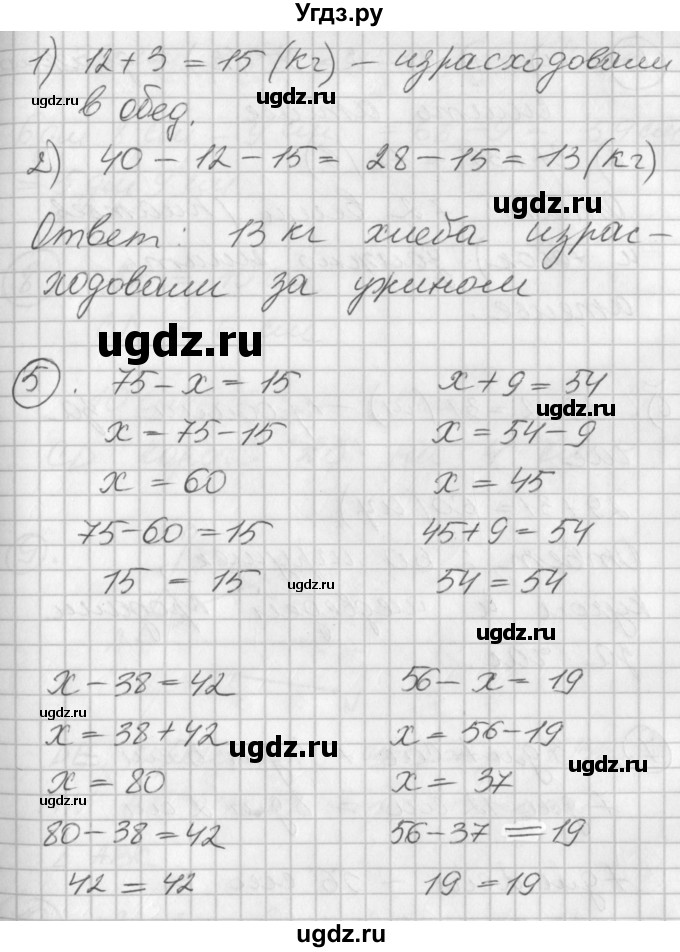 Угдз.ру
1) 12 + 3 = 15 (кг) – израсходовали
в обед.
2) 40 – 12 – 15 = 28 – 15 = 13 (кг)
Ответ: 13 кг хлеба израс-
ходовали за ужином
5. 75 – x = 15
x = 75 – 15
x = 60
75 – 60 = 15
15 = 15
x + 9 = 54
x = 54 – 9
x = 45
45 + 9 = 54
54 = 54
x – 38 = 42
x = 38 + 42
x = 80
80 – 38 = 42
42 = 42
56 – x = 19
x = 56 – 19
x = 37
56 – 37 = 19
19 = 19
ugdz.ru
ugdz.ru
ugdz.ru
ugdz.ru
ugdz.ru
ugdz.ru
ugdz.ru
ugdz.ru
ugdz.ru
ugdz.ru
ugdz.ru
ugdz.ru
ugdz.ru
ugdz.ru